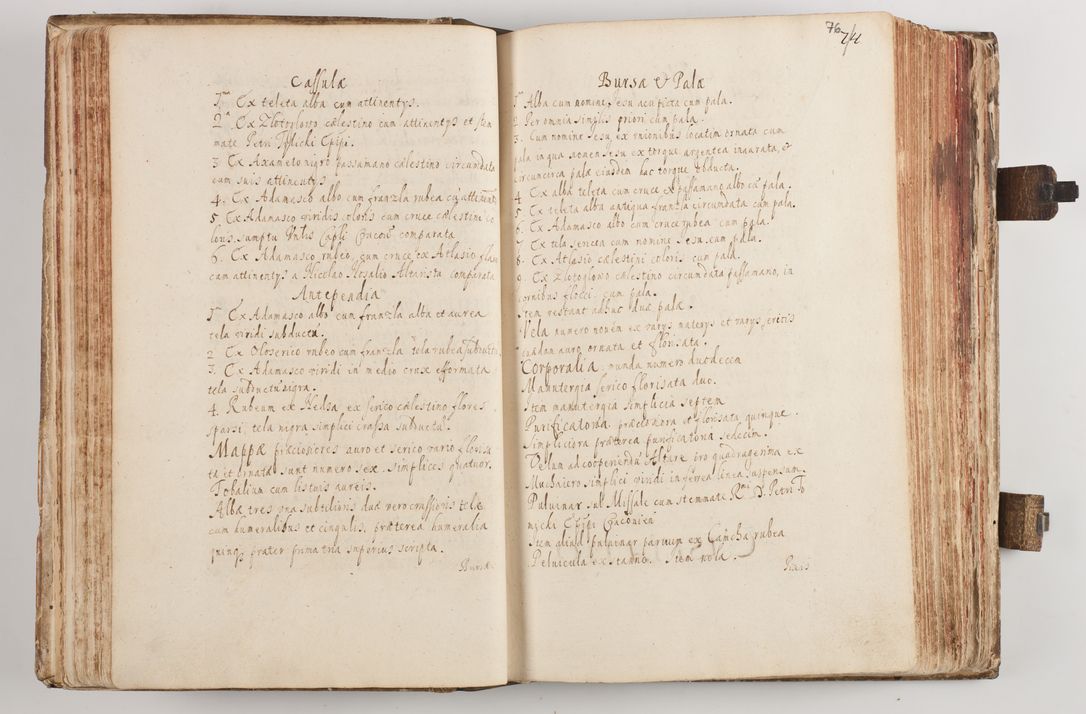 Casulæ
1ᵐ Ex teleta alba cum attinentys.
2ᵃ Ex Zlotoglowo cælestino cum attinentys et stem
mate Petri Epĩpi.
3. Ex Axameto nigro passamano cælestino circumdata
cum suis attinentys
4. Ex Adamasco albo cum franzla rubea cũ attinent
5 Ex Adamasco viridis coloris cum cruce cælestini co
loris sumptu Cap̃li comparata
6. Ex Adamasco rubeo cum cruce ex Atlasio flauo
cum attinentys a Nicolao Rosalio Altarista comparata
Antependia
1ᵐ Ex Adamasco albo cum franzla alba et aurea
tela viridi subducta.
2 Ex Oloserico rubeo cum franzla tela rubea subducta
3. Ex Adamasco viridi in medio cruse efformata
tela subductũ nigra.
4. Rubeum ex serico cælestino flores
sparsi, tela nigra simplici crassa subductũ.
Mappæ præciosiores auro et serico vario florisa
tæ et ornatæ sunt numero sex, simplices quatuor.
Tobalium cum listuis aureis.
Albæ tres una subtilioris duæ vero crassioris telæ
cum humeralibus et cingulis, præterea humeralia
quinq præter prima tria superius scripta.
Bursæ
76
Bursa & Palæ
1ᵐ Alba cum nomine Jesu acu picta cum pala.
2 Per omnia similis priori cum pala.
3. Cum nomine Jesu ex unionibus locatim ornata cum
pala in qua nomen Jesu ex torque argentea inaurata, &
circumcirca pala eiusdem hac torque obducta.
4 Ex alba teleta cum cruce ex passamano albo cũ pala.
5. Ex teleta alba antiqua franzla circumdata cum pala.
6. Ex Adamasco albo cum cruce rubea cum pala.
7. Ex tela sericea cum nomine Jesu cum pala.
8. Ex Atlasio cælestini coloris cum pala.
9. Ex Zlotoglowo cælestino circumdata passamano, in
cornibus flocci cum pala.
Item restant adhuc duæ palæ.
Vela numero novem ex varys materys et varys sericis
quædam auro ornata et florisata.
Corporalia munda numero duodecca
Manutergia serico florisata duo.
Item manutergia simplicia septem
Purificatoria præclariora et florisata quinque.
Simpliciora præterea purificatoria sedecim.
Velum ad cooperiendũ Altare pro quadragesima ex
Muchaiero simplici viridi in ferea linea suspensum
Puluinar sub Missale cum stemmate Rᵐⁱ D. Petri
Epĩpi
Item aliud puluinar paruum ex Camcha rubea
Peluicula ex stanno. Item nola.